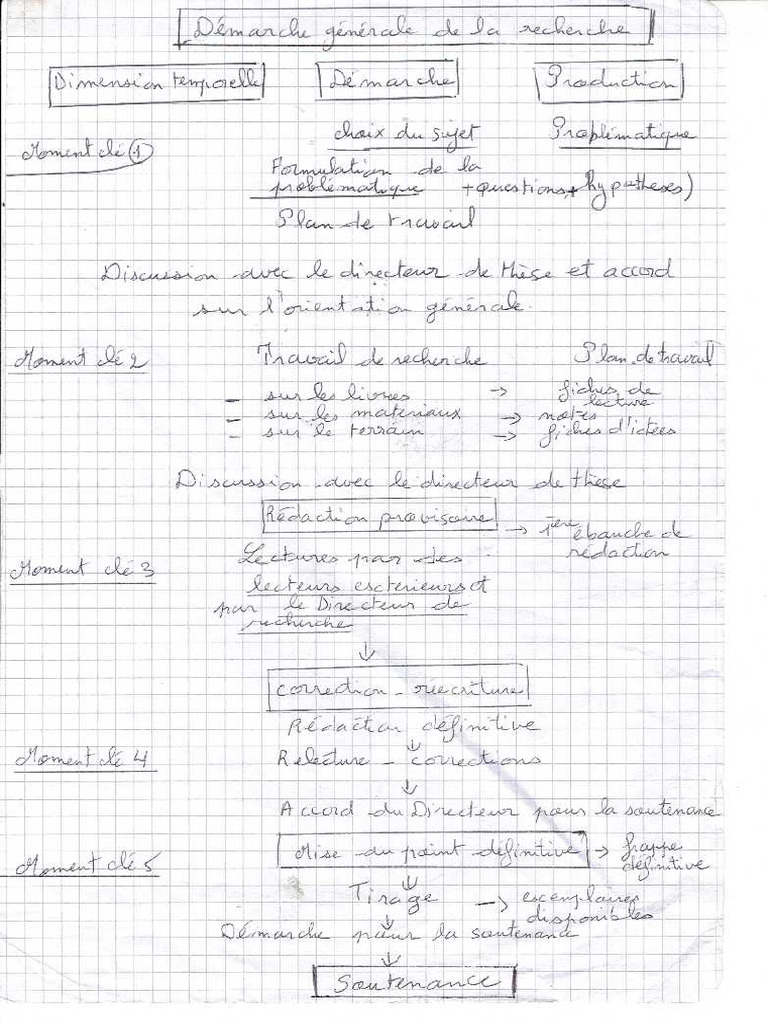 Démarche générale de la recherche
Dimension temporelle Démarche Production
choix du sujet Problématique
Moment clé 1
Formulation de la
problématique + questions + hypothèses)
Plan de travail
Discussion avec le directeur de thèse et accord
sur l'orientation générale.
Moment clé 2 Travail de recherche Plan de travail
- sur les livres → fiches de
lecture
- sur les matériaux → notes
- sur le terrain → fiches d'idées
Discussion avec le directeur de thèse
Rédaction provisoire → 1ère ébauche de
rédaction
Moment clé 3 Lectures par des
lecteurs extérieurs et
par le Directeur de
recherche
↓
correction - réécriture
Rédaction définitive
↓
Moment clé 4 Relecture - corrections
↓
Accord du Directeur pour la soutenance
Mise au point définitive → frappe
définitive
Moment clé 5
↓
Tirage → exemplaires
disponibles
↓
Démarche pour la soutenance
↓
Soutenance